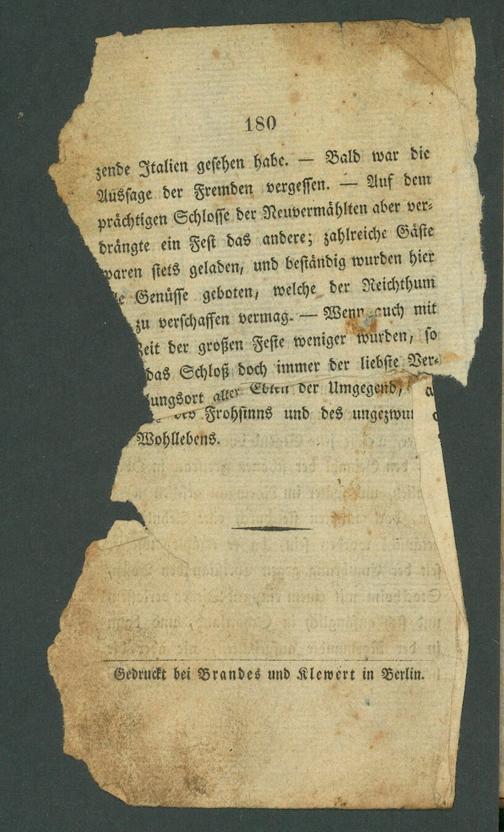 180
zende Italien gesehen habe. — Bald war die
Aussage der Fremden vergessen. — Auf dem
prächtigen Schlosse der Neuvermählten aber ver-
drängte ein Fest das andere; zahlreiche Gäste
waren stets geladen, und beständig wurden hier
Genüsse geboten, welche der Reichthum
zu verschaffen vermag. — Wenn auch mit
Zeit der großen Feste weniger wurden, so
das Schloß doch immer der liebste Ver-
lungsort aller Edlen der Umgegend,
des Frohsinns und des
Wohllebens.
Gedruckt bei Brandes und Klewert in Berlin.